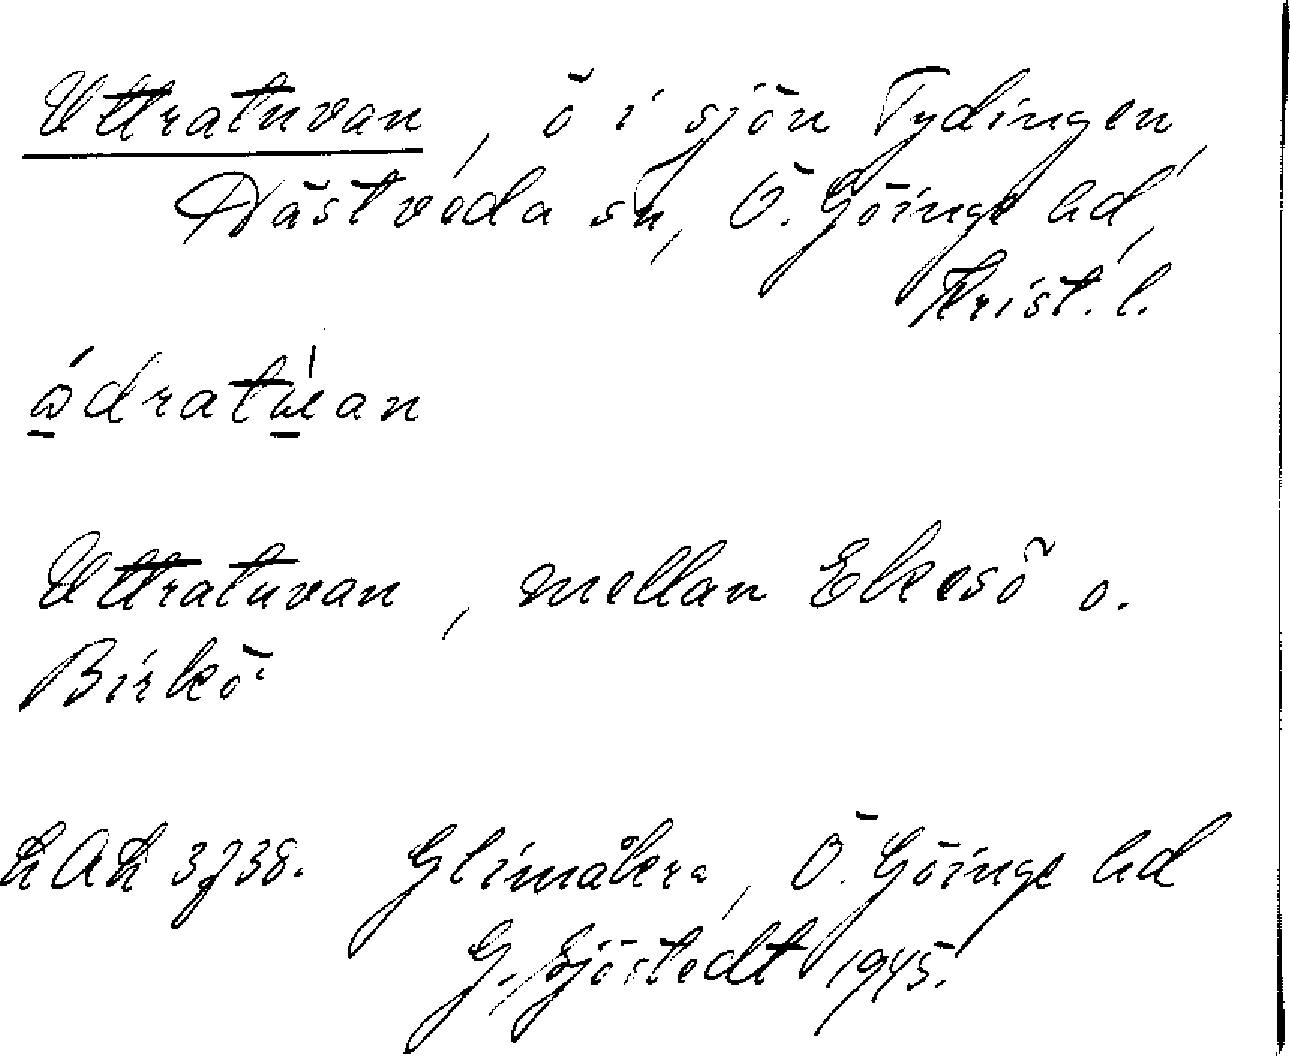 Uttratuvan, ö i sjön Tydingen,
Hästveda sn, Ö. Göinge hd,
Krist. l.
Uttratuvan, mellan Elkesö o.
Birkö.
LAL 3738. Glimåkra, Ö. Göinge hd
G. Sjöstedt 1945.